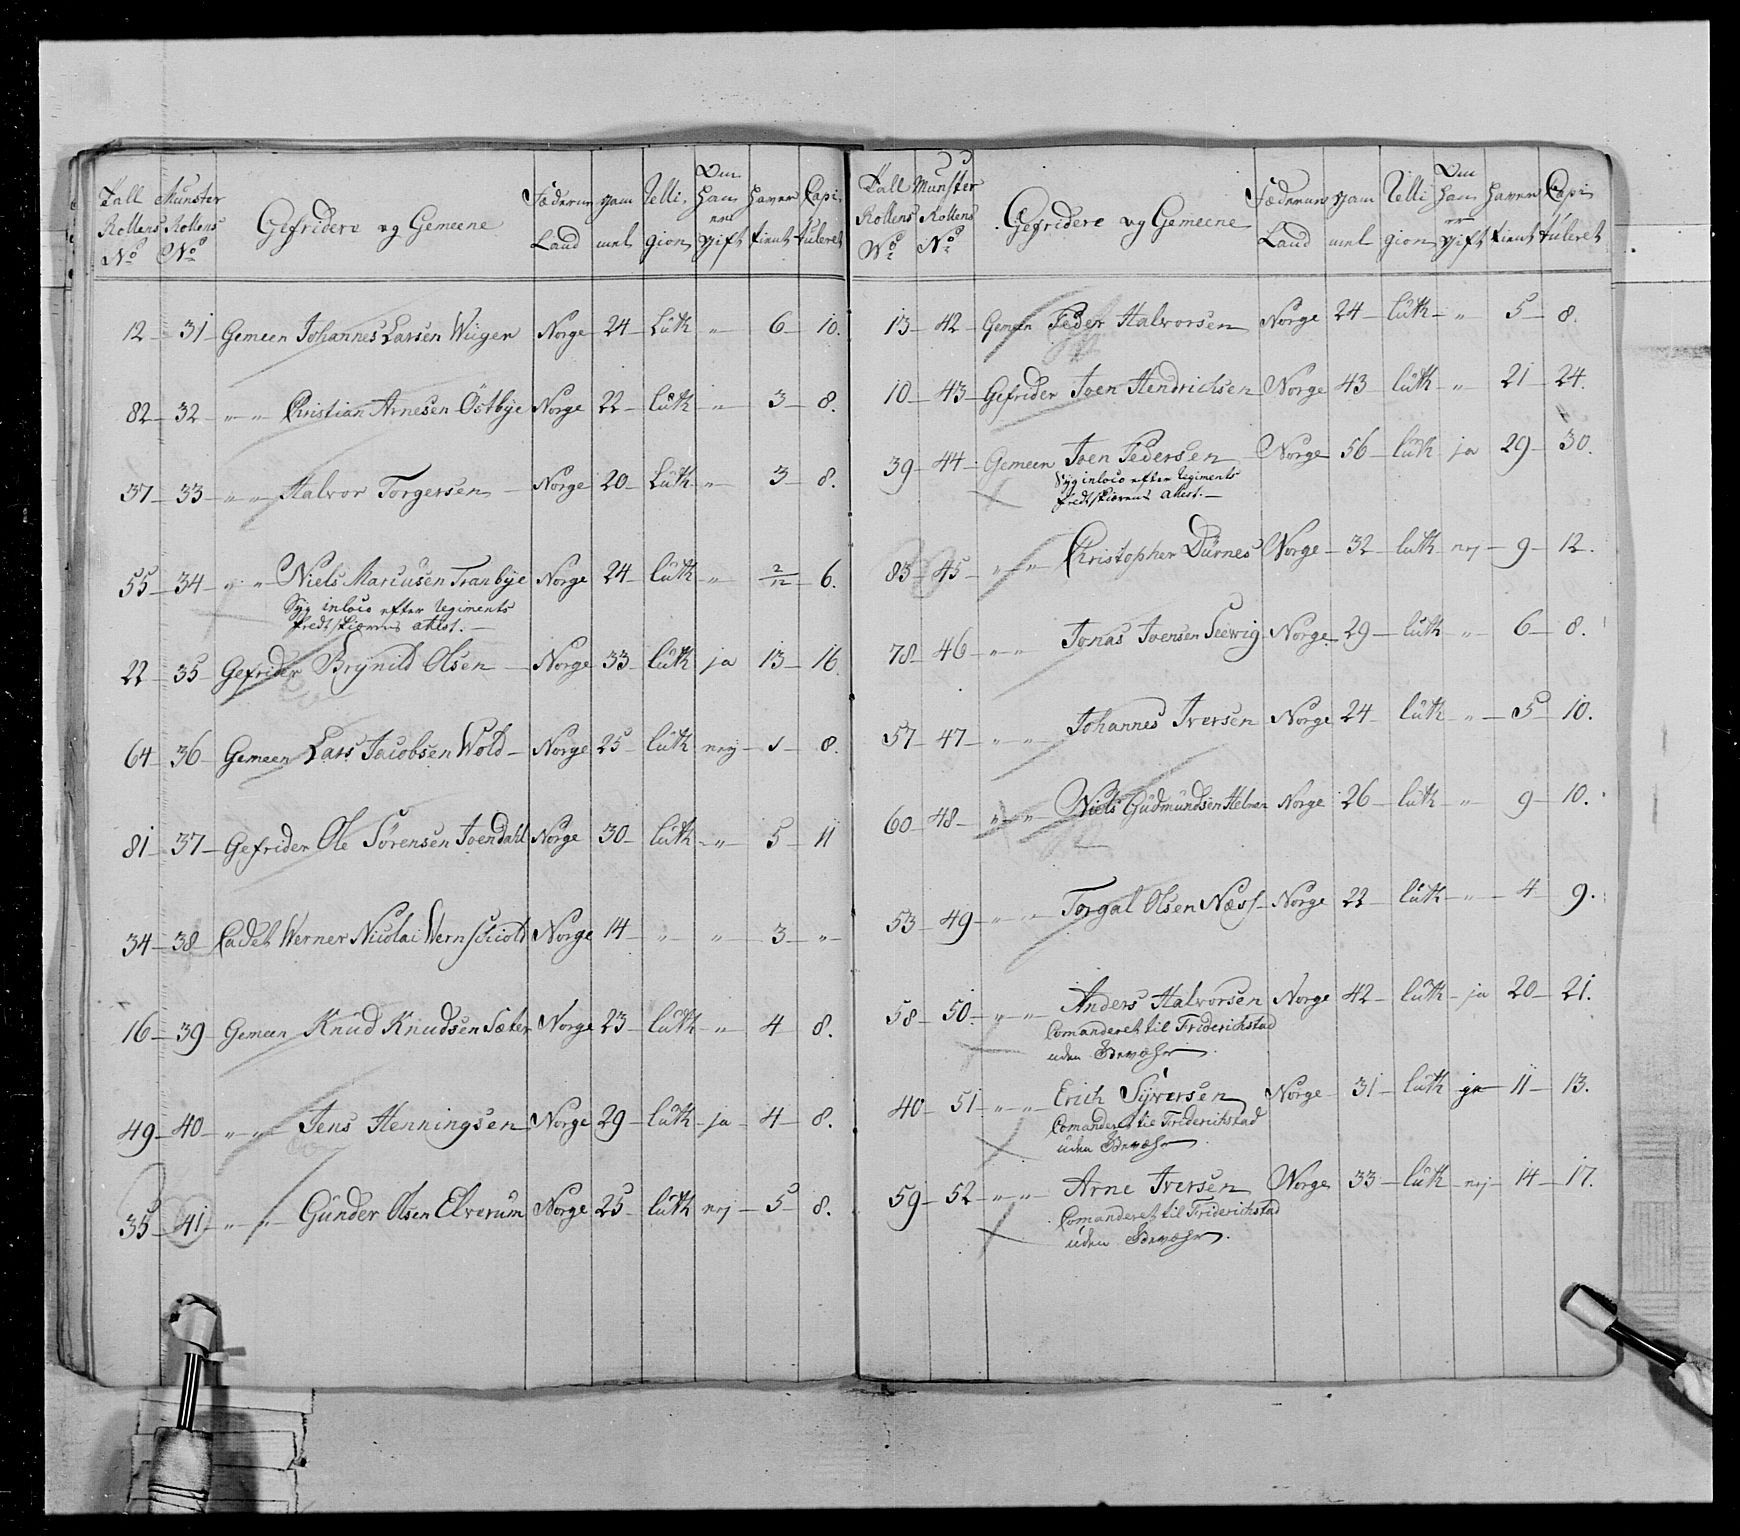 Tall Rollens No Munster Rollens No Gefridere og Gemeene Fæderne Land gammel Relligion Om han er gift haver tient Capituleret
12 – 31 – Gemeen Johannes Larsen Wiiger Norge 24 – Luth – „ – 6 – 10.
82 – 32 – „ „ Christian Arnesen Östbÿe Norge 22 – luth – „ – 3 – 8.
37 – 33 – „ „ Halvor Torgersen – Norge 20 – Luth – „ – 3 – 8.
55 – 34 – „ „ Niels Marcusen Tranbÿe Norge 24 – luth – „ – 2/12 – 6.
Syg inloco efter Regiments
Feldtskiærens attest. –
22 – 35 – Gefrider Brÿnild Olsen – Norge 33 – luth ja – 13 – 16
64 – 36 – Gemeen Lars Jacobsen Wold – Norge 25 – luth nej – 1 – 8.
81 – 37 – Gefrider Ole Sörensen Joendahl Norge 30 – luth – „ – 5 – 11
34 – 38 – Cadet Werner Nicolai Wernschiold Norge 14 – „ – „ – 3 – „
16 – 39 – Gemeen Knud Knudsen Sæter Norge 23 – luth – „ – 4 – 8.
49 – 40 – „ „ Jens Henningsen Norge 29 – luth – ja – 4 – 8.
35 – 41 – „ „ Gunder Olsen Elverum Norge 25 – luth nej – 5 – 8.
Tall Rollens No Munster Rollens No Gefridere og Gemeene Fæderne Land gammel Relligion Om han er gift haver tient Capituleret
13 – 42 – Gemeen Peder Halvorsen Norge 24 – luth – „ – 5 – 8.
10 – 43 – Gefrider Joen Hendrichsen Norge 43 – luth – „ – 21 – 24.
39 – 44 – Gemeen Joen Pedersen – Norge 56 – luth ja – 29 – 30.
Syg inloco efter Regiments
Feldtskiærens attest. –
83 – 45 – „ „ Christopher Dürnes Norge – 32 – luth nej – 9 – 12.
78 – 46 – „ „ Jonas Joensen Seevig Norge – 29 – luth – „ – 6 – 8.
57 – 47 – „ „ Johannes Iversen Norge 24 – luth – „ – 5 – 10.
60 – 48 – „ „ Niels Gudmundsen Norge 26 – luth – „ – 9 – 10.
53 – 49 – „ „ Torgal Olsen Næss – Norge 22 – luth – „ – 4 – 9.
58 – 50 – „ „ Anders Halvorsen Norge 42 – luth – ja – 20 – 21.
Comanderet til Friderichstad
uden Gevæhr.
40 – 51 – „ „ Erich Sÿversen Norge – 31 – luth ja – 11 – 13.
Comanderet til Friderichstad
uden Gevæhr.
59 – 52 – „ „ Arne Iversen Norge 33 – luth – nej – 14 – 17.
Comanderet til Friderichstad
uden Gevæhr.